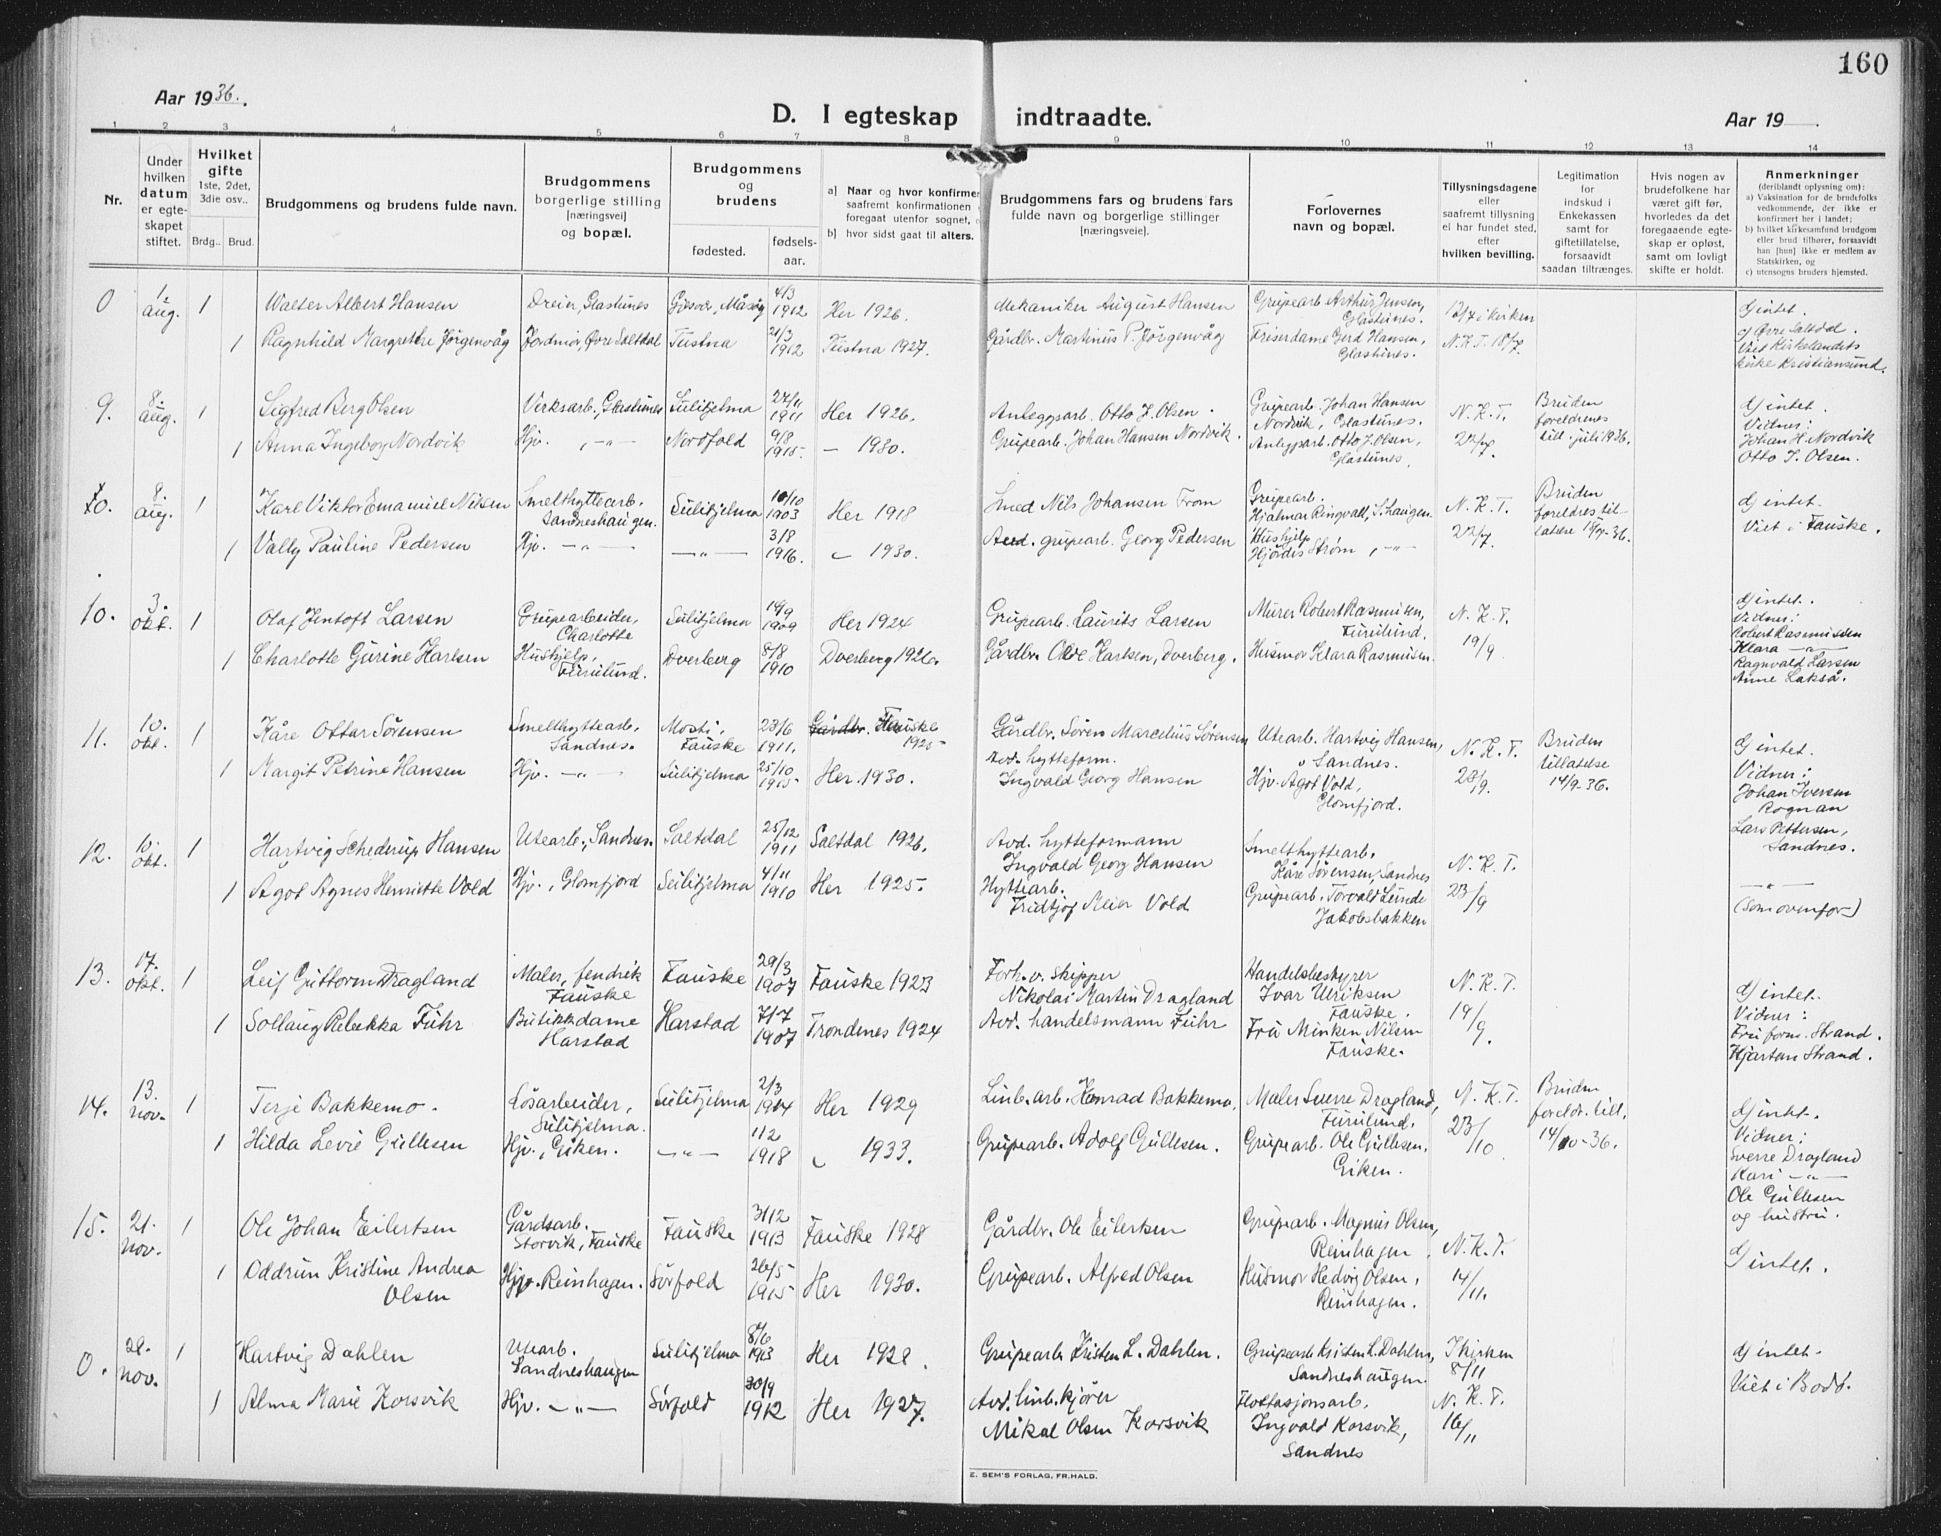 160
Aar 1936.
D. I egteskap indtraadte.
Aar 19
1 2 3 4 5 6 7 8 9 10 11 12 13 14
Nr.
Under hvilken datum er egteskapet stiftet.
Hvilket gifte 1ste, 2det, 3die osv..
Brdg.. Brud.
Brudgommens og brudens fulde navn.
Brudgommens borgerlige stilling [næringsvei] og bopæl.
Brudgommens og brudens
fødested.
fødselsaar.
a] Naar og hvor konfirmer
saafremt konfirmationen
foregaat utenfor sognet,
b] hvor sidst gaat til alters.
Brudgommens fars og brudens fars fulde navn og borgerlige stillinger [næringsveie].
Forlovernes navn og bopæl.
Tillysningsdagene eller saafremt tillysning ei har fundet sted, efter hvilken bevilling.
Legitimation for indskud i Enkekassen samt for giftetillatelse, forsaavidt saadan tiltrænges.
Hvis nogen av brudefolkene har været gift før, hvorledes da det foregaaende egteskap er opløst, samt om lovligt skifte er holdt.
Anmerkninger
(deriblandt oplysning om):
a) Vaksination for de brudefolks vedkommende, der ikke er konfirmert her i landet;
b) hvilket kirkesamfund brudgom eller brud tilhører, forsaavidt han [hun] ikke er medlem av Statskirken, og
c) utensogns bruders hjemsted.
0 1. aug. 1 Walter Albert Hansen Dreier, Glastunes Gjesvær, Måsøy 4/3 1912 Her 1926. Mekaniker August Hansen Grupearb. Arthur Jensen, Glastunes. 12/7 i kirken g) intet.
1 Ragnhild Margrethe Jørgenvåg Jordmor, Øvre Saltdal Tustna 21/3 1912 Tustna 1927. Gårdbr. Martinus P. Jørgenvåg Friserdame Gerd Hansen, Glastunes. N.K.T. 18/7. c) Øvre Saltdal. Viet Kirkelandets kirke Kristiansund.
9. 8. aug. 1 Sigfred Berg Olsen Verksarb., Glastunes Sulitjelma 27/11 1911 Her 1926. Anleggsarb. Otto J. Olsen. Grupearb. Johan Hansen Nordvik, Glastunes. N.K.T. 22/7. Bruden foreldrenes till. juli 1936. g) intet. Vidner:
1 Anna Ingeborg Nordvik Hjv. -"- Nordfold 9/8 1915. — 1930. Grupearb. Johan Hansen Nordvik. Anleggsarb. Otto J. Olsen, Glastunes. Johan H. Nordvik Otto J. Olsen.
10. 8. aug. 1 Karl Viktor Emanuel Nilsen Smelthyttearb. Sandneshaugen. Sulitjelma 10/10 1903 Her 1918 Smed Nils Johansen From Grupearb. Hjalmar Ringvall, S.haugen. N.K.T. 22/7. Bruden foreldres tillatelse g) intet.
1 Vally Pauline Pedersen Hjv. -"- -"- 3/8 1916. " 1930. Avd. grupearb. Georg Pedersen Hushjelp Hjördis Strøm, -"- Viet i Fauske.
10. 3. okt. 1 Olaf Jentoft Larsen Grupearbeider, Charlotte Sulitjelma 14/9 1909 Her 1924 Grupearb. Laurits Larsen Murer Robert Rasmussen, Furulund. N.K.T. 19/9 g) intet. Vidner: Robert Rasmussen
1 Charlotte Gurine Karlsen Hushjelp, Furulund. Dverberg 8/8 1910 Dverberg 1926. Gårdbr. Ole Karlsen, Dverberg. Husmor Klara Rasmussen. Klara -"- Ragnvald Larsen Anne Lakså.
11. 10. okt. 1 Kåre Ottar Sørensen Smelthyttearb. Sandnes. Mosti, Fauske 23/6 1911. Gårdbr. Fauske 1925 Gårdbr. Søren Marcelius Sørensen Utearb. Hartvig Hansen, Sandnes. N.K.T. 23/9. Bruden tillatelse 14/9-36. g) intet.
1 Margit Petrine Hansen Hjv. -"- Sulitjelma 25/10 1915 Her. 1930. Avd. hytteform. Ingvald Georg Hansen Hjv. Agot Vold, Glomfjord. Vidner: Johan Iversen Rognan Lars Pettersen, Sandnes.
12. 10. okt. 1 Hartvig Schederup Hansen Utearb., Sandnes. Saltdal 25/12 1911 Saltdal 1926. Avd. hytteformann Ingvald Georg Hansen Smelthyttearb. Kåre Sørensen, Sandnes N.K.T. 23/9 -"-
1 Agot Agnes Henriette Vold Hjv., Glomfjord Sulitjelma 4/11 1910 Her 1925. Hyttearb. Fridtjof Meier Vold Grupearb. Torvald Lunde Jakobsbakken (som ovenfor)
13. 17. okt. 1 Leif Guttorm Dragland Maler, fendrik Fauske Fauske 29/3 1907 Fauske 1923 Forh.v. skipper Nikolai Martin Dragland Handelsbestyrer Ivar Ulriksen Fauske. N.K.T. 19/9. g) intet. Vidner:
1 Sollaug Rebekka Führ Butikkdame Harstad Harstad 7/7 1907 Trondenes 1924 Avd. handelsmann Führ Fru Minken Nilsen Fauske. Fru form. Strand. Hjartan Strand.
14. 13. nov. 1 Terje Bakkemo. Løsarbeider, Sulitjelma. Sulitjelma 2/3 1914 Her 1929 Linb. arb. Konrad Bakkemo. Maler Sverre Dragland, Furulund. N.K.T. 23/10 Bruden foreldr. till. 14/10-36. g) intet. Vidner:
1 Hilda Levie Gullesen Hjv., Giken. -"- 1/12 1918 " 1933. Grupearb. Adolf Gullesen. Grupearb. Ole Gullesen. Giken. Sverre Dragland Kari -"- Ole Gullesen og hustru.
15. 21. nov. 1 Ole Johan Eilertsen Gårdsarb. Storvik, Fauske Fauske 31/12 1913 Fauske 1928 Gårdbr. Ole Eilertsen Grupearb. Magnus Olsen, Reinhagen. N.K.T. 14/11. g) intet.
1 Oddrun Kristine Andrea Olsen Hjv. Reinhagen. Sørfold 26/5 1915 Her 1930. Grupearb. Alfred Olsen Husmor Hedvig Olsen, Reinhagen.
0. 28. nov. 1 Hartvig Dahlen Utearb. Sandneshaugen Sulitjelma 8/6 1913 Her 1928. Grupearb. Kristen L. Dahlen. Grupearb. Kristen L. Dahlen, Sandneshaugen. I kirken 8/11 g) intet.
1 Alma Marie Korsvik Hjv. -"- Sørfold 30/9 1912 Her 1927. Avd. linb. kjører Mikal Olsen Korsvik Flottasjonsarb. Ingvald Korsvik, Sandnes N.K.T. 16/11 Viet i Bodø.
E. SEM'S FORLAG, FR.HALD.